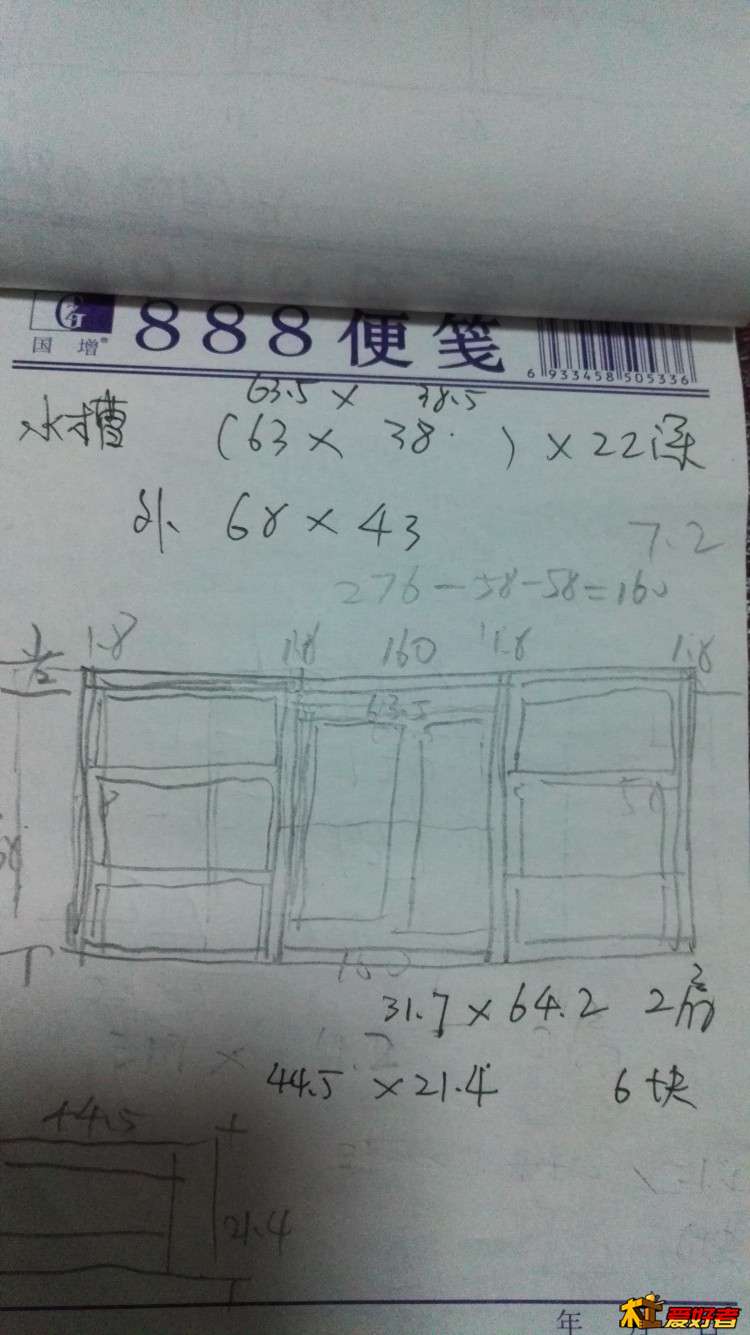 888便笺
国增®
6 933458 505336
63.5 × 38.5
水槽 (63 × 38 ) × 22深
外 68 × 43
7.2
276-58-58=160
1.8 1.8 160 1.8 1.8
63.5
58
160
31.7 × 64.2 2扇
44.5 × 21.4 6块
44.5
21.4
年
木工爱好者